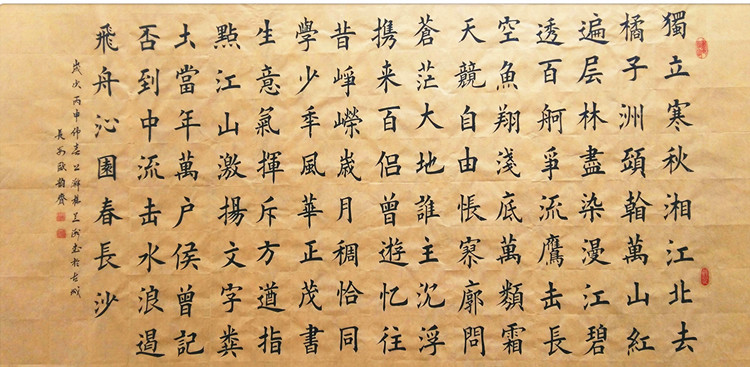 獨立寒秋湘江北去
橘子洲頭翰萬山紅
遍层林盡染漫江碧
透百舸爭流鷹击長
空魚翔淺底萬類霜
天競自由悵寥廓問
蒼茫大地誰主沉浮
携来百侣曾遊忆往
昔崢嶸歲月稠恰同
學少年風華正茂書
生意氣揮斥方遒指
點江山激揚文字粪
土當年萬户侯曾記
否到中流击水浪遏
飛舟沁園春長沙
歲次丙申